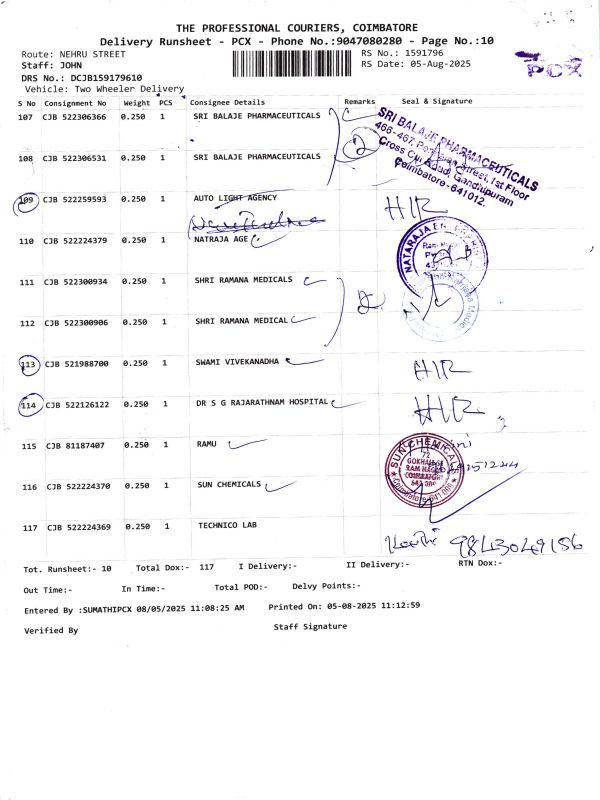 THE PROFESSIONAL COURIERS, COIMBATORE
Delivery Runsheet - PCX - Phone No.:9047080280 - Page No.:10
Route: NEHRU STREET RS No.: 1591796
Staff: JOHN RS Date: 05-Aug-2025
PCX
DRS No.: DCJB159179610
Vehicle: Two Wheeler Delivery
S No Consignment No Weight PCS Consignee Details Remarks Seal & Signature
107 CJB 522306366 0.250 1 SRI BALAJE PHARMACEUTICALS
SRI BALAJE PHARMACEUTICALS
466-467, Street, 1st Floor
Cross Cut Road, Gandhipuram
Coimbatore-641012.
108 CJB 522306531 0.250 1 SRI BALAJE PHARMACEUTICALS 2
109 CJB 522259593 0.250 1 AUTO LIGHT AGENCY H/R
110 CJB 522224379 0.250 1 NATRAJA AGE
NATARAJA
111 CJB 522300934 0.250 1 SHRI RAMANA MEDICALS 2
112 CJB 522300906 0.250 1 SHRI RAMANA MEDICAL
113 CJB 521988700 0.250 1 SWAMI VIVEKANADHA H/R
114 CJB 522126122 0.250 1 DR S G RAJARATHNAM HOSPITAL H/R
115 CJB 81187407 0.250 1 RAMU
SUN CHEMICALS
72
GOKHALE ST
RAM NAGAR
COIMBATORE
641 009
116 CJB 522224370 0.250 1 SUN CHEMICALS
117 CJB 522224369 0.250 1 TECHNICO LAB 9843049156
Tot. Runsheet:- 10 Total Dox:- 117 I Delivery:- II Delivery:- RTN Dox:-
Out Time:- In Time:- Total POD:- Delvy Points:-
Entered By :SUMATHIPCX 08/05/2025 11:08:25 AM Printed On: 05-08-2025 11:12:59
Verified By Staff Signature